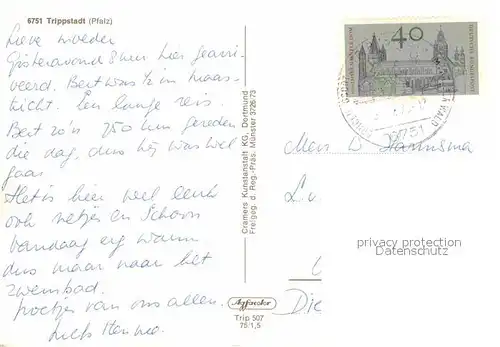 6751 Trippstadt (Pfalz)
Lieve moeder
Gisteravond 8 uur hier gearri-
veerd. Bert was ½ in maas-
tricht. Een lange reis.
Bert zo'n 750 km gereden
die dag, dus hij was wel
gaar
Het is hier wel leuk
ook netjes en schoon
vandaag erg warm
dus maar naar het
zwembad.
groetjes van ons allen.
Liefs
Cramers Kunstanstalt KG, Dortmund
Freigeg. d. Reg.-Präs. Münster 3/26/73
Agfacolor
Trip 507
75/1,5
40
DEUTSCHE BUNDESPOST
6751
Mevr. D
privacy protection
Datenschutz
Die